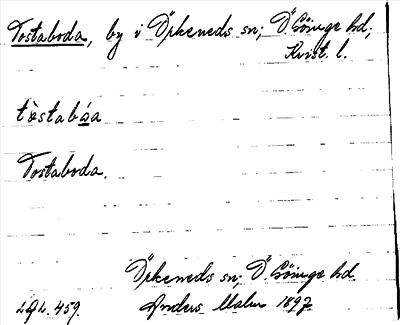 Tostaboda, by i Örkeneds sn; Ö. Göinge hd;
Krist. l.
tòstabóa
Tostaboda.
Örkeneds sn; Ö. Göinge hd
Anders Malm 1897
459.